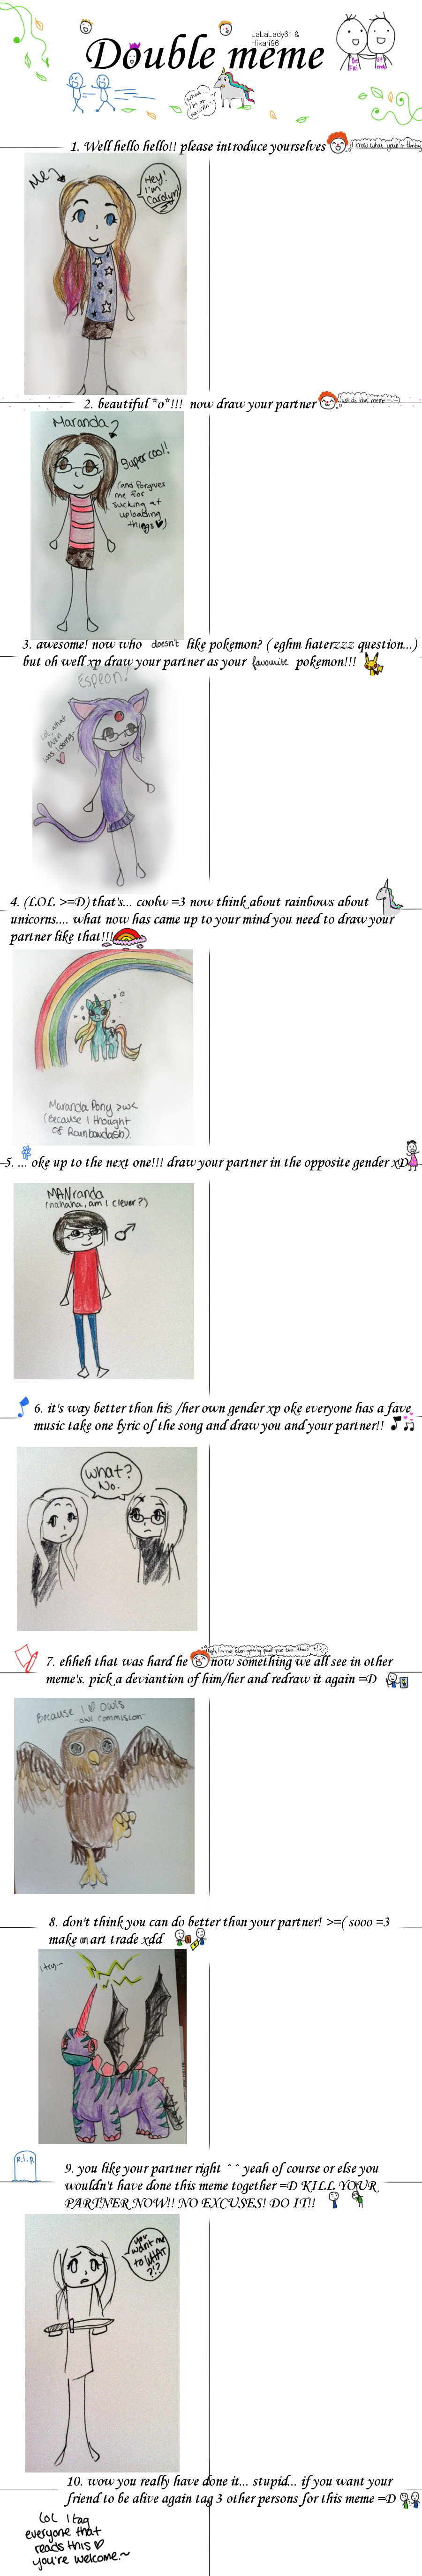 LaLaLady61 &
Hikari96
Double meme
what I'm an unicorn!
Be Fri
St ends
1. Well hello hello!! please introduce yourselves
I know what your'e thinking
Me
Hey!
I'm
Carolyn!
2. beautiful *o*!!! now draw your partner
Just do this meme -.-
Maranda
Super cool!
(and forgives
me for
sucking at
uploading
things ♥)
3. awesome! now who doesn't like pokemon? ( eghm haterzzz question...)
but oh well xp draw your partner as your favourite pokemon!!!
Espeon!
Lol, what
even
was I doing~
4. (LOL >=D) that's... coolw =3 now think about rainbows about
unicorns.... what now has came up to your mind you need to draw your
partner like that!!!
Maranda Pony >w<
(Because I thought
of Rainbowdash).
5. ... oke up to the next one!!! draw your partner in the opposite gender xD
MANranda
(hahaha, am I clever?)
6. it's way better than his /her own gender xp oke everyone has a fave
music take one lyric of the song and draw you and your partner!!
what?
No.
7. ehheh that was hard he now something we all see in other
meme's. pick a deviantion of him/her and redraw it again =D
Because I ♥ Owls
-owl commission-
8. don't think you can do better than your partner! >=( sooo =3
make an art trade xdd
I try~
R.i.P
9. you like your partner right ^^ yeah of course or else you
wouldn't have done this meme together =D KILL YOUR
PARTNER NOW!! NO EXCUSES! DO IT!!
you
want me
to WHAT
?!?
10. wow you really have done it... stupid... if you want your
friend to be alive again tag 3 other persons for this meme =D
Lol I tag
everyone that
reads this ♥
you're welcome.~